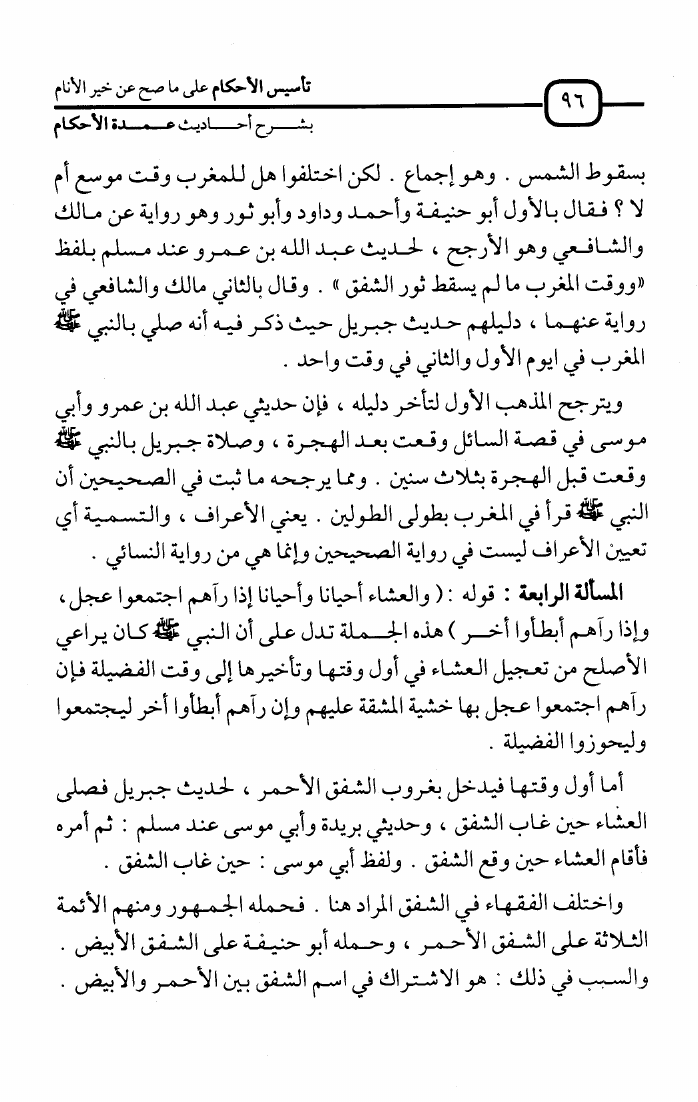 تأسيس الأحكام على ما صح عن خير الأنام
٩٦
بشرح أحاديث عمدة الأحكام
بسقوط الشمس . وهو إجماع . لكن اختلفوا هل للمغرب وقت موسع أم
لا ؟ فقال بالأول أبو حنيفة وأحمد وداود وأبو ثور وهو رواية عن مالك
والشافعي وهو الأرجح ، لحديث عبد الله بن عمرو عند مسلم بلفظ
«ووقت المغرب ما لم يسقط ثور الشفق» . وقال بالثاني مالك والشافعي في
رواية عنهما ، دليلهم حديث جبريل حيث ذكر فيه أنه صلي بالنبي ﷺ
المغرب في ايوم الأول والثاني في وقت واحد .
ويترجح المذهب الأول لتأخر دليله ، فإن حديثي عبد الله بن عمرو وأبي
موسى في قصة السائل وقعت بعد الهجرة ، وصلاة جبريل بالنبي ﷺ
وقعت قبل الهجرة بثلاث سنين . ومما يرجحه ما ثبت في الصحيحين أن
النبي ﷺ قرأ في المغرب بطولى الطولين . يعني الأعراف ، والتسمية أي
تعيين الأعراف ليست في رواية الصحيحين وإنما هي من رواية النسائي .
المسألة الرابعة : قوله :( والعشاء أحيانا وأحيانا إذا رآهم اجتمعوا عجل،
وإذا رآهم أبطأوا أخر ) هذه الجملة تدل على أن النبي ﷺ كان يراعي
الأصلح من تعجيل العشاء في أول وقتها وتأخيرها إلى وقت الفضيلة فإن
رآهم اجتمعوا عجل بها خشية المشقة عليهم وإن رآهم أبطأوا أخر ليجتمعوا
وليحوزوا الفضيلة .
أما أول وقتها فيدخل بغروب الشفق الأحمر ، لحديث جبريل فصلى
العشاء حين غاب الشفق ، وحديثي بريدة وأبي موسى عند مسلم : ثم أمره
فأقام العشاء حين وقع الشفق . ولفظ أبي موسى : حين غاب الشفق .
واختلف الفقهاء في الشفق المراد هنا . فحمله الجمهور ومنهم الأئمة
الثلاثة على الشفق الأحمر ، وحمله أبو حنيفة على الشفق الأبيض .
والسبب في ذلك : هو الاشتراك في اسم الشفق بين الأحمر والأبيض .